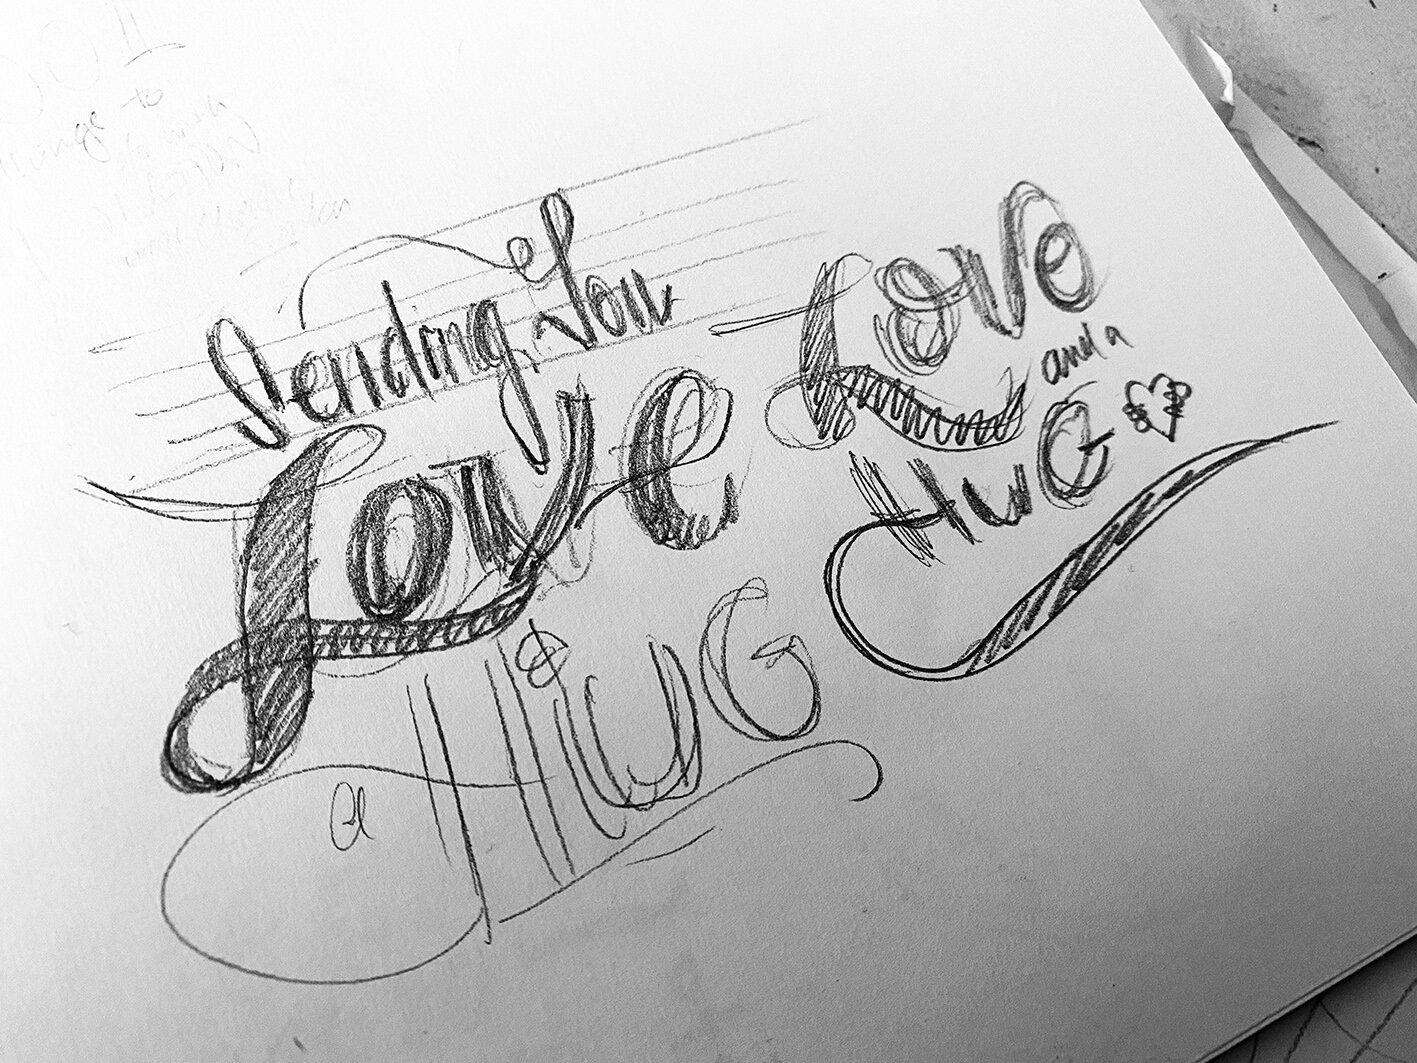 Things to
Sending You
Love
&
a HUG
Love
and a
HUG